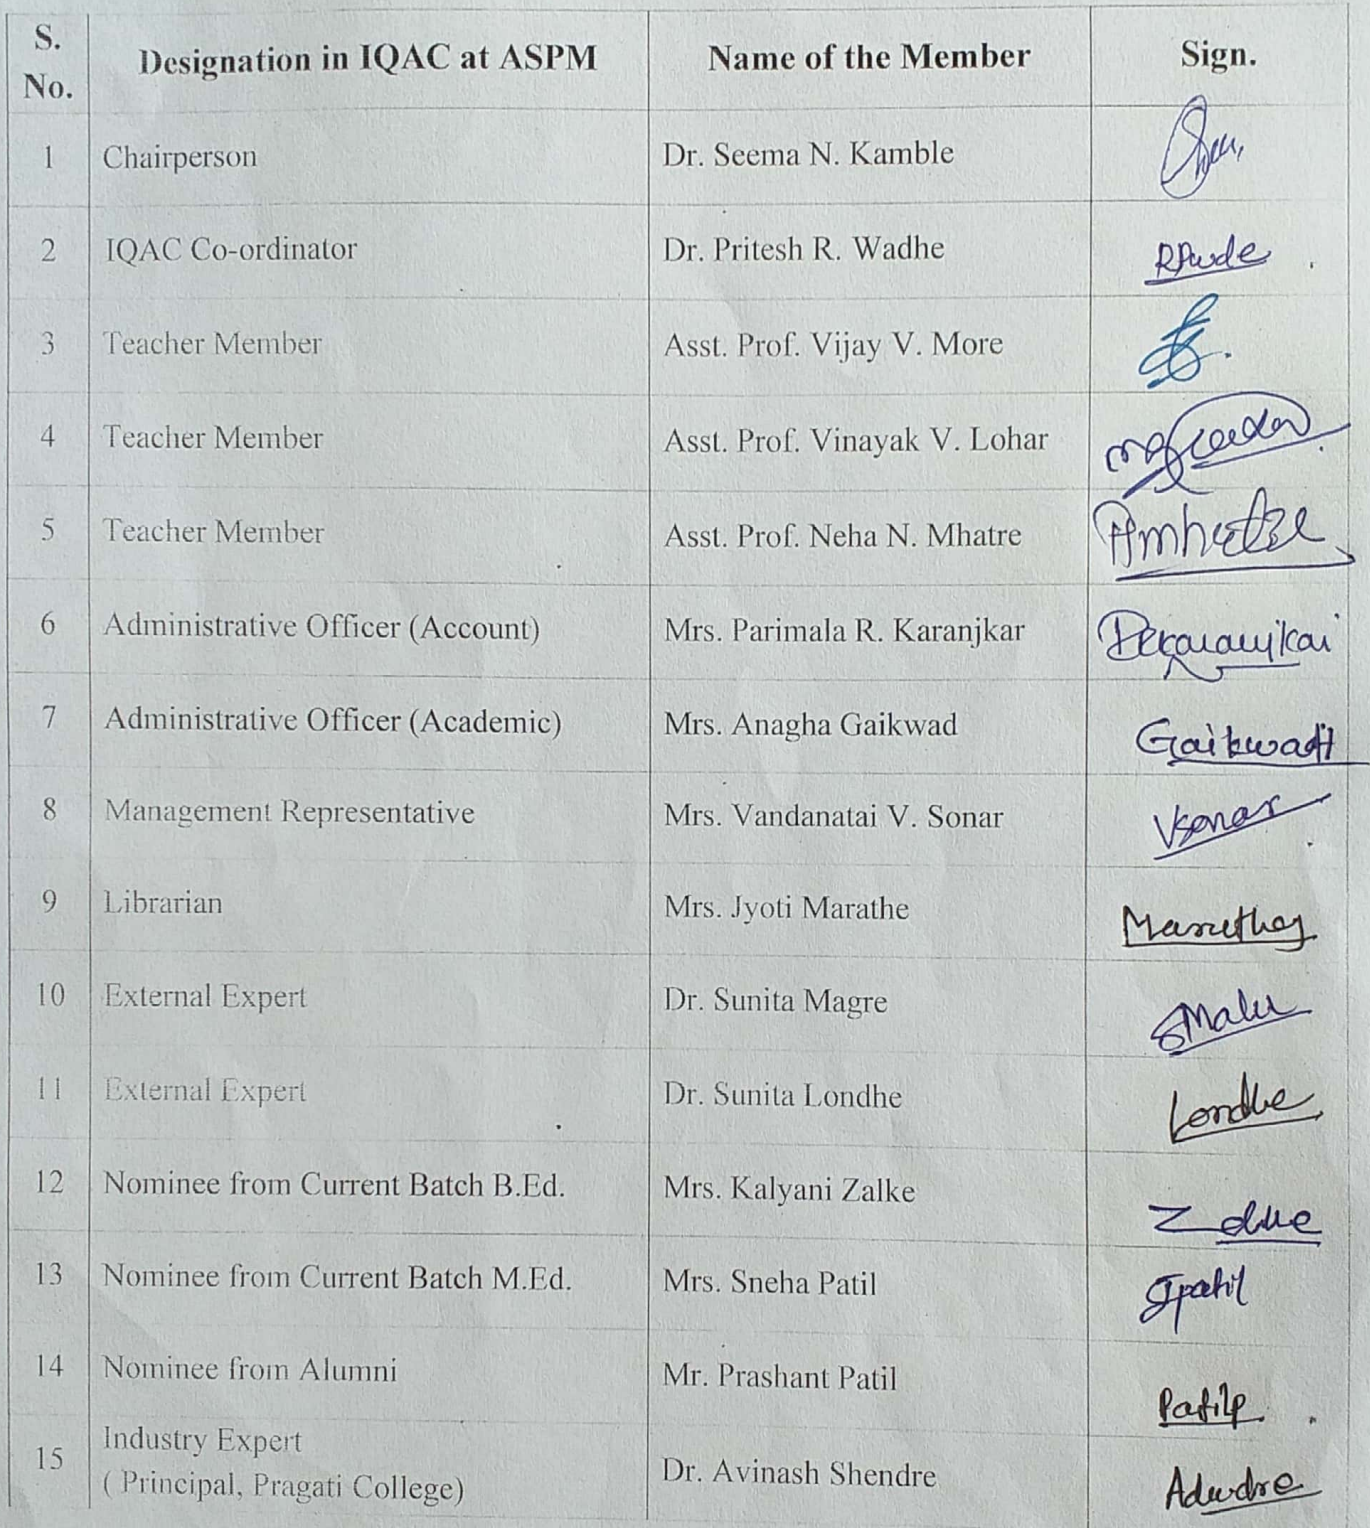 S. No. Designation in IQAC at ASPM Name of the Member Sign.
1 Chairperson Dr. Seema N. Kamble
2 IQAC Co-ordinator Dr. Pritesh R. Wadhe
3 Teacher Member Asst. Prof. Vijay V. More
4 Teacher Member Asst. Prof. Vinayak V. Lohar
5 Teacher Member Asst. Prof. Neha N. Mhatre
6 Administrative Officer (Account) Mrs. Parimala R. Karanjkar
7 Administrative Officer (Academic) Mrs. Anagha Gaikwad Gaikwad
8 Management Representative Mrs. Vandanatai V. Sonar Vsonar
9 Librarian Mrs. Jyoti Marathe
10 External Expert Dr. Sunita Magre
11 External Expert Dr. Sunita Londhe Londhe
12 Nominee from Current Batch B.Ed. Mrs. Kalyani Zalke
13 Nominee from Current Batch M.Ed. Mrs. Sneha Patil Spatil
14 Nominee from Alumni Mr. Prashant Patil Patilp
15 Industry Expert
( Principal, Pragati College) Dr. Avinash Shendre